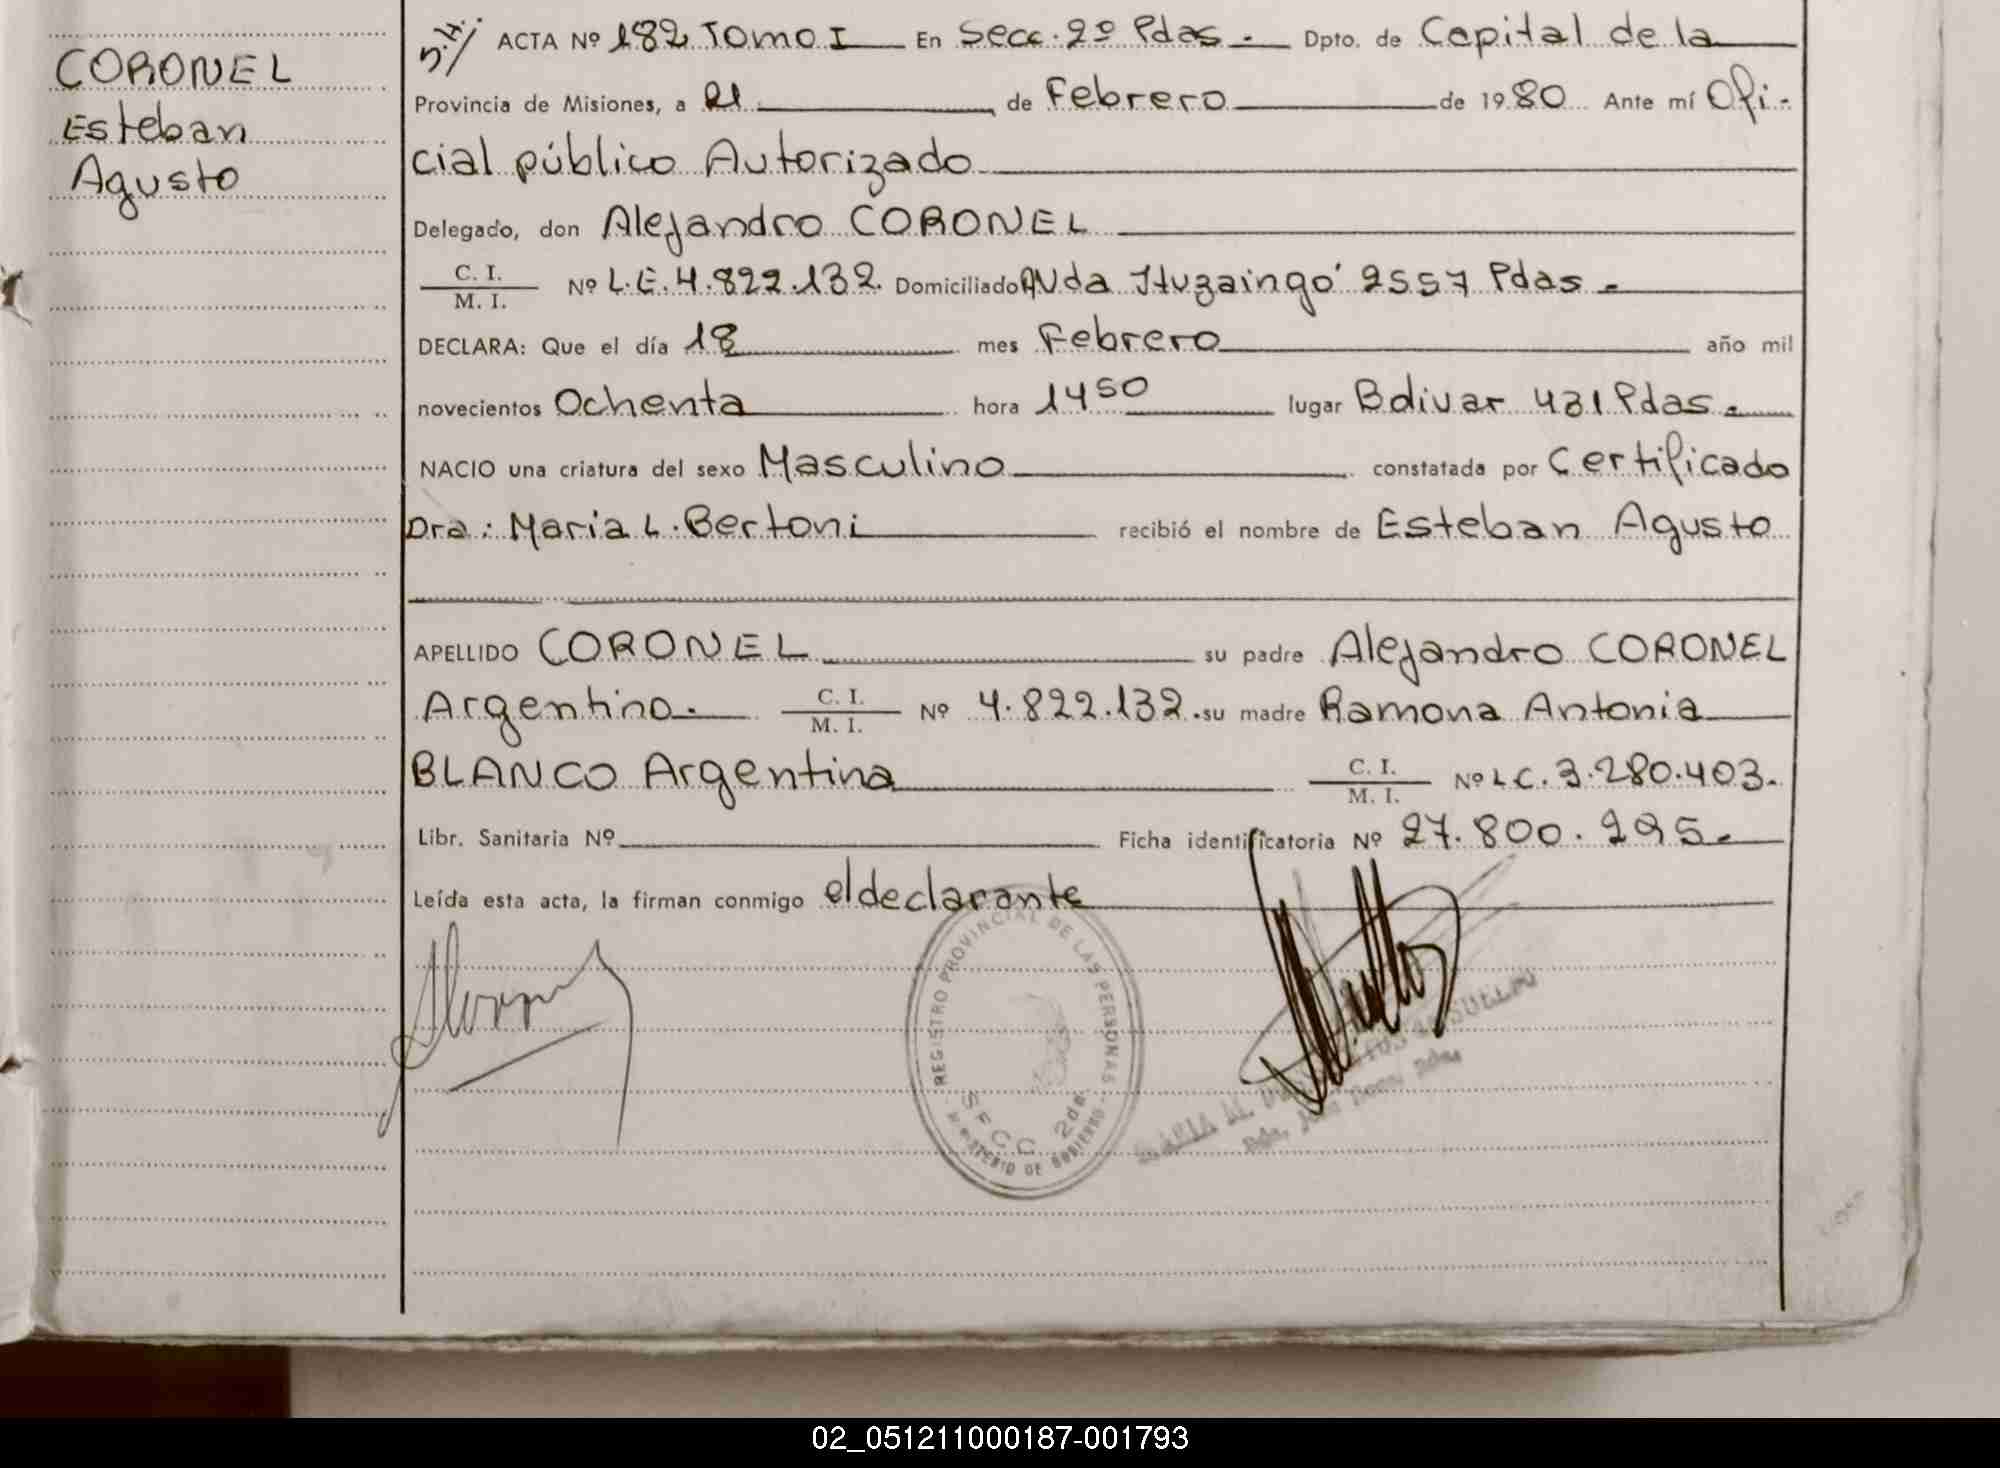 CORONEL
Esteban
Agusto
ACTA Nº 182 Tomo I En Secc. 2º Pdas. Dpto. de Capital de la
Provincia de Misiones, a 21 de Febrero de 1980 Ante mí Ofi-
cial público Autorizado
Delegado, don Alejandro CORONEL
C. I.
M. I. Nº L.E. 4.822.132. Domiciliado AVda Ituzaingó 2557 Pdas.
DECLARA: Que el día 18 mes Febrero año mil
novecientos Ochenta hora 14 50 lugar Bolivar 431 Pdas.
NACIO una criatura del sexo Masculino constatada por Certificado
Dra: Maria L. Bertoni recibió el nombre de Esteban Agusto
APELLIDO CORONEL su padre Alejandro CORONEL
Argentino. C. I. M. I. Nº 4.822.132. su madre Ramona Antonia
BLANCO Argentina C. I. M. I. Nº LC. 3.280.403.
Libr. Sanitaria Nº Ficha identificatoria Nº 27.800.295.
Leída esta acta, la firman conmigo el declarante
REGISTRO PROVINCIAL DE LAS PERSONAS
S F C C 2da.
MINISTERIO DE GOBIERNO
02_051211000187-001793